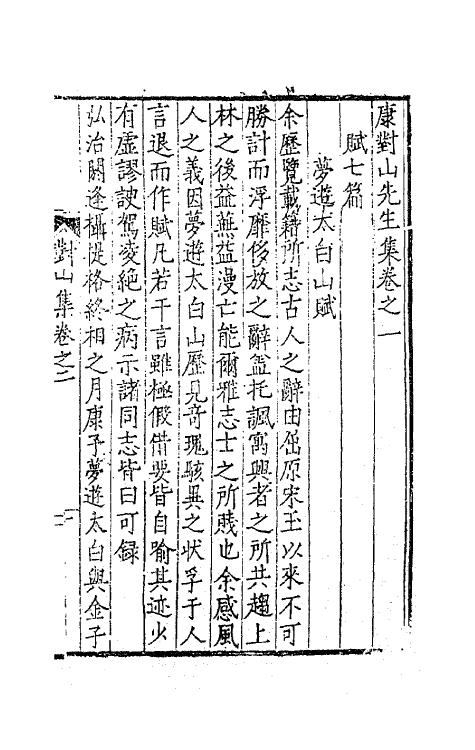 康對山先生集卷之一
賦七篇
夢遊太白山賦
余歷覽載籍所志古人之辭由屈原宋玉以來不可
勝計而浮靡侈放之辭盖托諷寓興者之所共趨上
林之後益蕪益漫亡能爾雅志士之所賤也余感風
人之義因夢遊太白山歷見竒瑰駭異之狀孚于人
言退而作賦凡若干言雖極假借要皆自喻其迹少
有虛謬詖駕凌絶之病示諸同志皆曰可録
弘治閼逢攝提格終相之月康子夢遊太白與金子
對山集卷之二